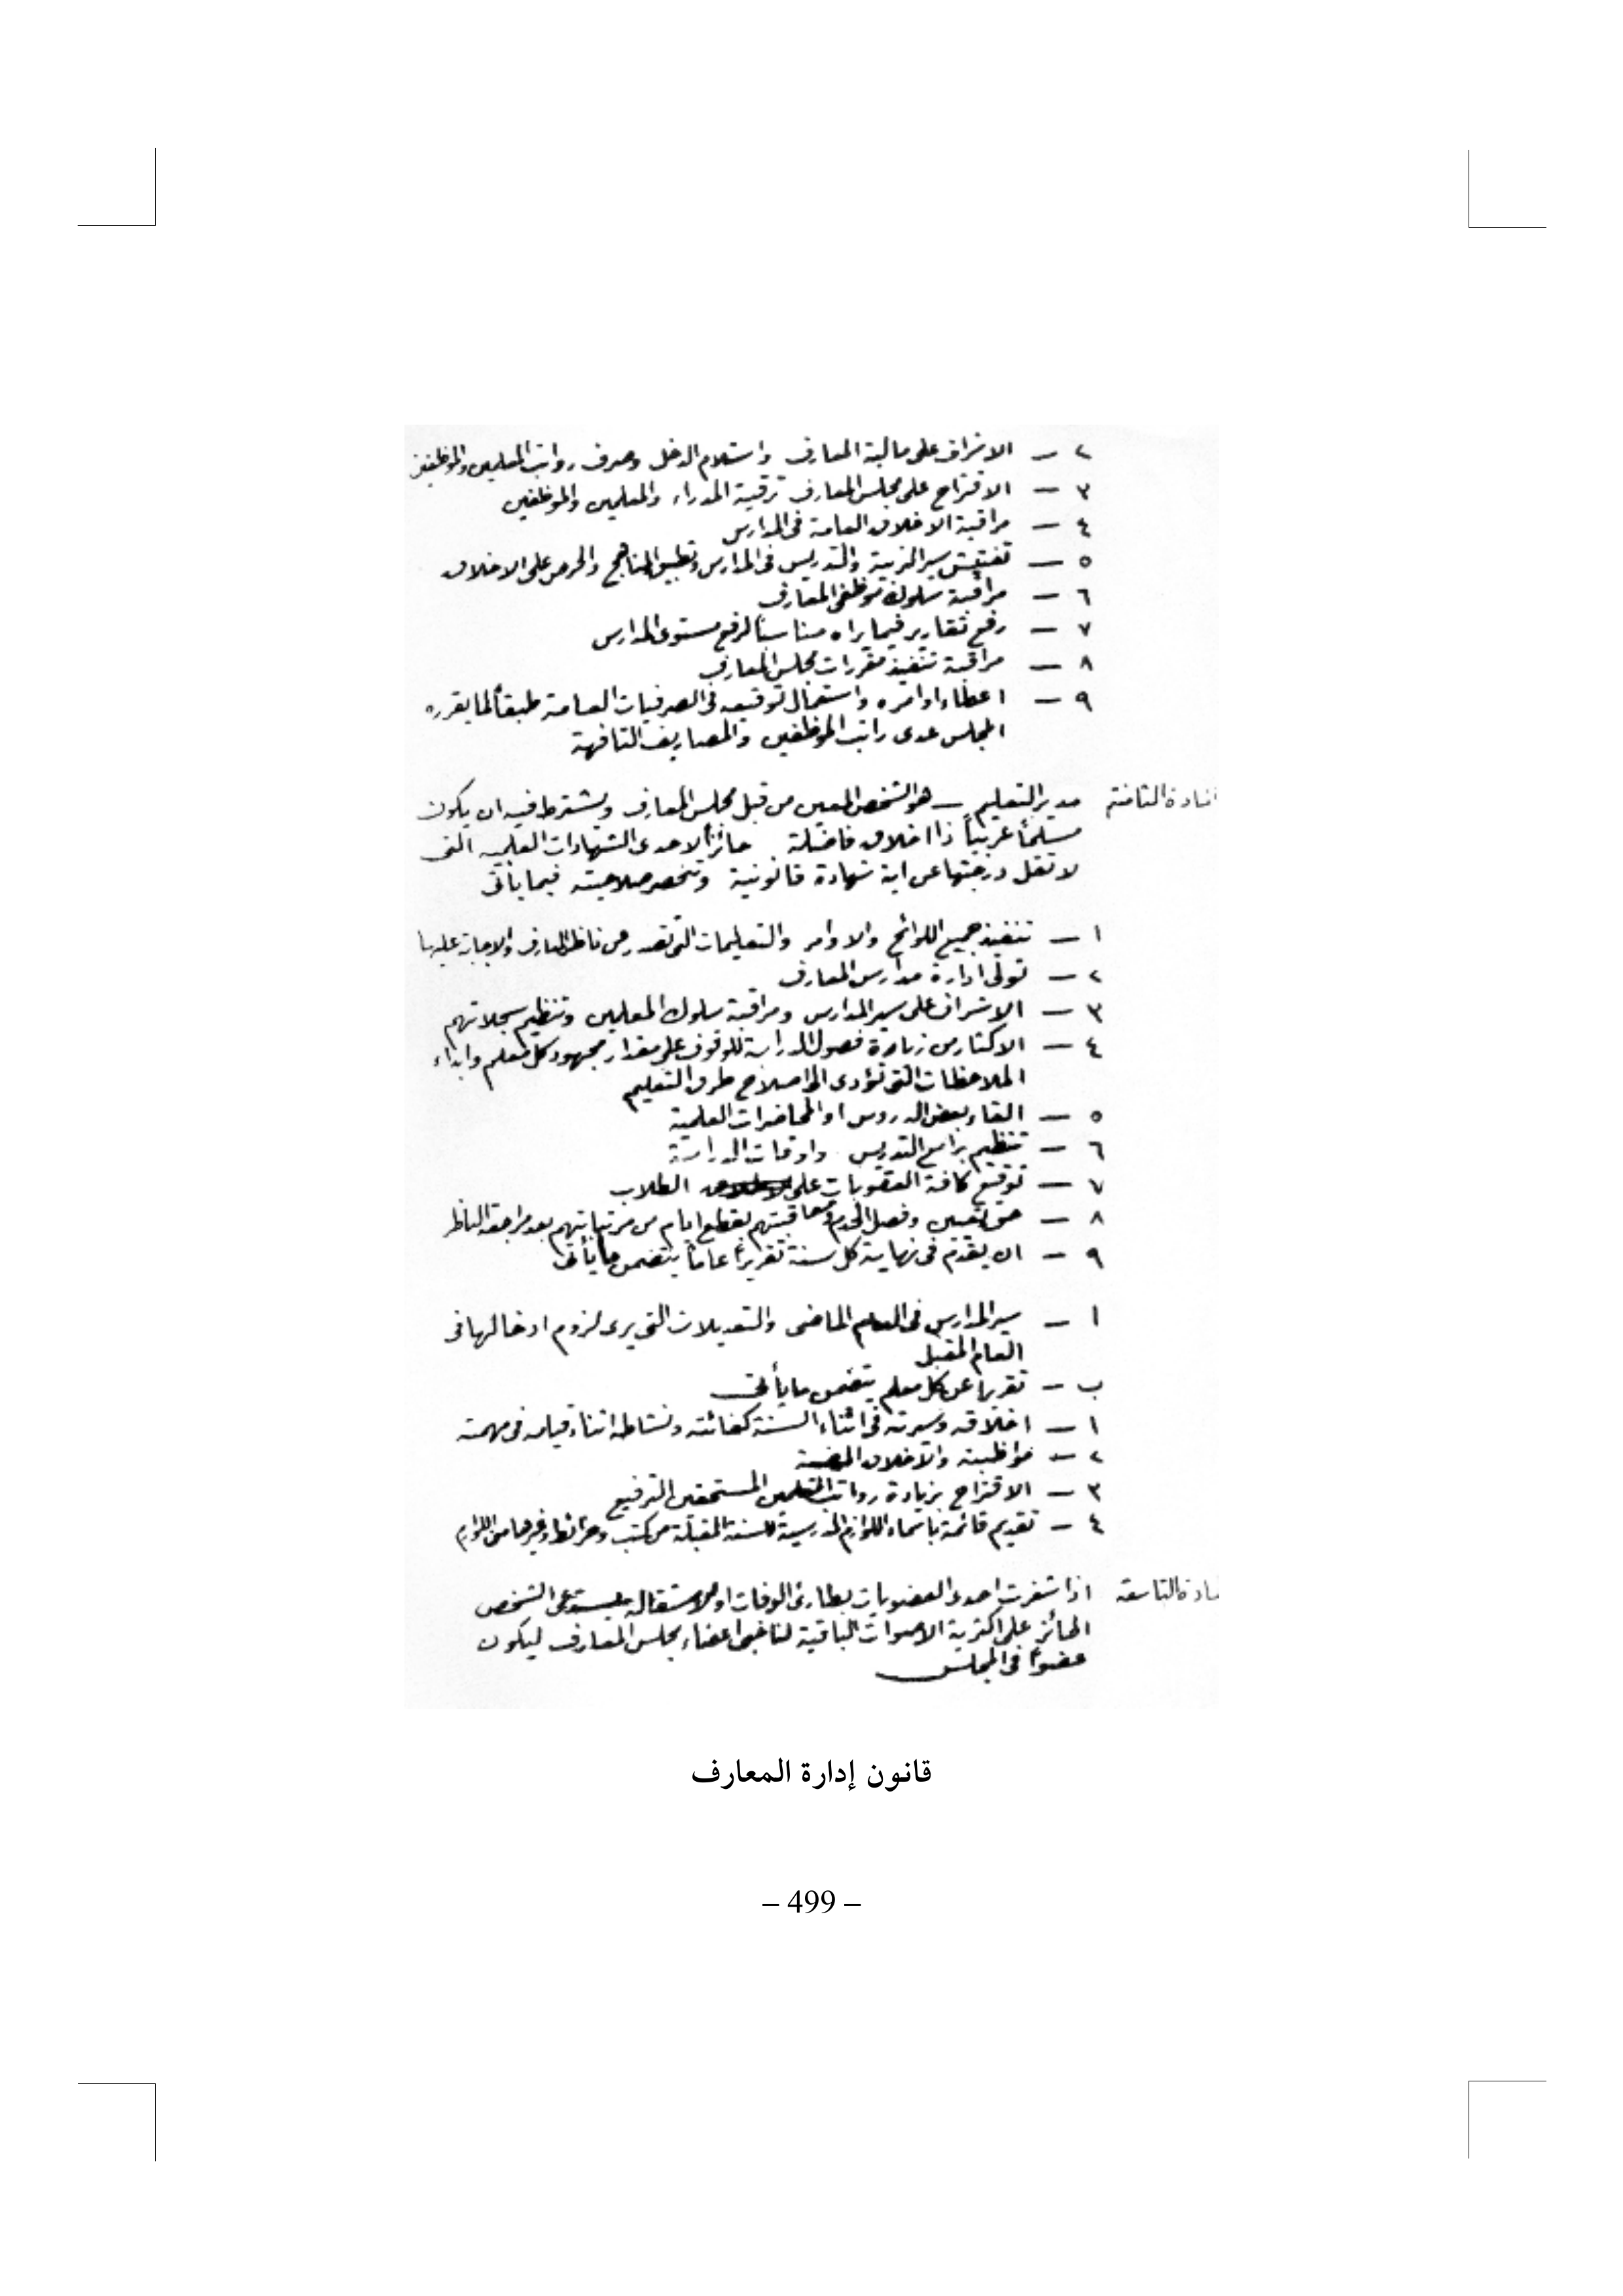 ٢ – الاشراف على مالية المعارف واستلام الدخل وصرف رواتب المعلمين والموظفين
٣ – الاقتراح على مجلس المعارف ترقية المدراء والمعلمين والموظفين
٤ – مراقبة الاخلاق العامة فى المدارس
٥ – تفتيش سير التربية والتدريس فى المدارس وتطبيق المناهج والحرص على الاخلاق
٦ – مراقبة سلوك موظفى المعارف
٧ – رفع تقارير فيما يراه مناسباً لرفع مستوى المدارس
٨ – مراقبة تنفيذ مقررات مجلس المعارف
٩ – اعطاء اوامره واستعمال توقيعه فى الصرفيات العامة طبقاً لما يقرره
المجلس عدى راتب الموظفين والمصاريف التافهة
المادة الثامنة مدير التعليم – هو الشخص المعين من قبل مجلس المعارف ويشترط فيه ان يكون
مسلماً عربياً ذا اخلاق فاضلة حائزاً لاحدى الشهادات العلمية التى
لا تقل درجتها عن اية شهادة قانونية وتنحصر صلاحيته فيما يأتى
١ – تنفيذ جميع اللوائح والاوامر والتعليمات التى تصدر من ناظر المعارف والاجابة عليها
٢ – تولى ادارة مدارس المعارف
٣ – الاشراف على سير المدارس ومراقبة سلوك المعلمين وتنظيم سجلاتهم
٤ – الاكثار من زيارة فصول الدراسة للوقوف على مقدار مجهود كل معلم وابداء
الملاحظات التى تؤدى الى اصلاح طرق التعليم
٥ – القاء بعض الدروس او المحاضرات العلمية
٦ – تنظيم برامج التدريس واوقات الدراسة
٧ – توقيع كافة العقوبات على الطلاب
٨ – حق تعيين وفصل الخدم ومعاقبتهم بقطع ايام من مرتباتهم بعد مراجعة الناظر
٩ – ان يقدم فى نهاية كل سنة تقريراً عاماً يتضمن ما يأتى
ا – سير المدارس فى العام الماضى والتعديلات التى يرى لزوم ادخالها فى
العام المقبل
ب – تقريرا عن كل معلم يتضمن ما يأتى
١ – اخلاقه وسيرته فى اثناء السنة كفائته ونشاطه اثناء قيامه فى مهمته
٢ – مواظبته والاخلاق
٣ – الاقتراح بزيادة رواتب المعلمين المستحقين الترفيع
٤ – تقديم قائمة باسماء اللوازم المدرسية للسنة المقبلة من كتب وخرائط وغيرها من اللوازم
المادة التاسعة اذا شغرت احدى العضويات بطارئ الوفات او الاستقالة يستدعى الشخص
الحائز على اكثرية الاصوات الباقية لناخبى اعضاء مجلس المعارف ليكون
عضواً فى المجلس
قانون إدارة المعارف
– 499 –